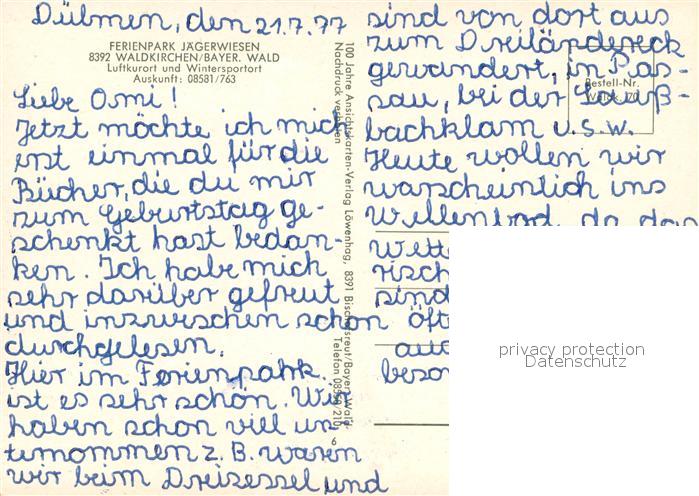 Dülmen, den 21.7.77
FERIENPARK JÄGERWIESEN
8392 WALDKIRCHEN/BAYER. WALD
Luftkurort und Wintersportort
Auskunft: 08581/763
Liebe Omi!
Jetzt möchte ich mich
erst einmal für die
Bücher, die du mir
zum Geburtstag ge-
schenkt hast bedan-
ken. Ich habe mich
sehr darüber gefreut
und inzwischen schon
durchgelesen.
Hier im Ferienpark
ist es sehr schön. Wir
haben schon viel un-
ternommen z.B. waren
wir beim Dreisessel und
100 Jahre Ansichtskarten-Verlag Löwenhag, 8391 Bischofsreut/Bayer. Wald
Nachdruck verboten
Telefon 08550/210
6
sind von dort aus
zum Dreiländereck
gewandert, in Pas-
sau, bei der
bachklam u.s.w.
Bestell-Nr.
Heute wollen wir
warscheinlich ins
Wellenbad, da das
Wette
risch
sind
öft
auc
beson
privacy protection
Datenschutz